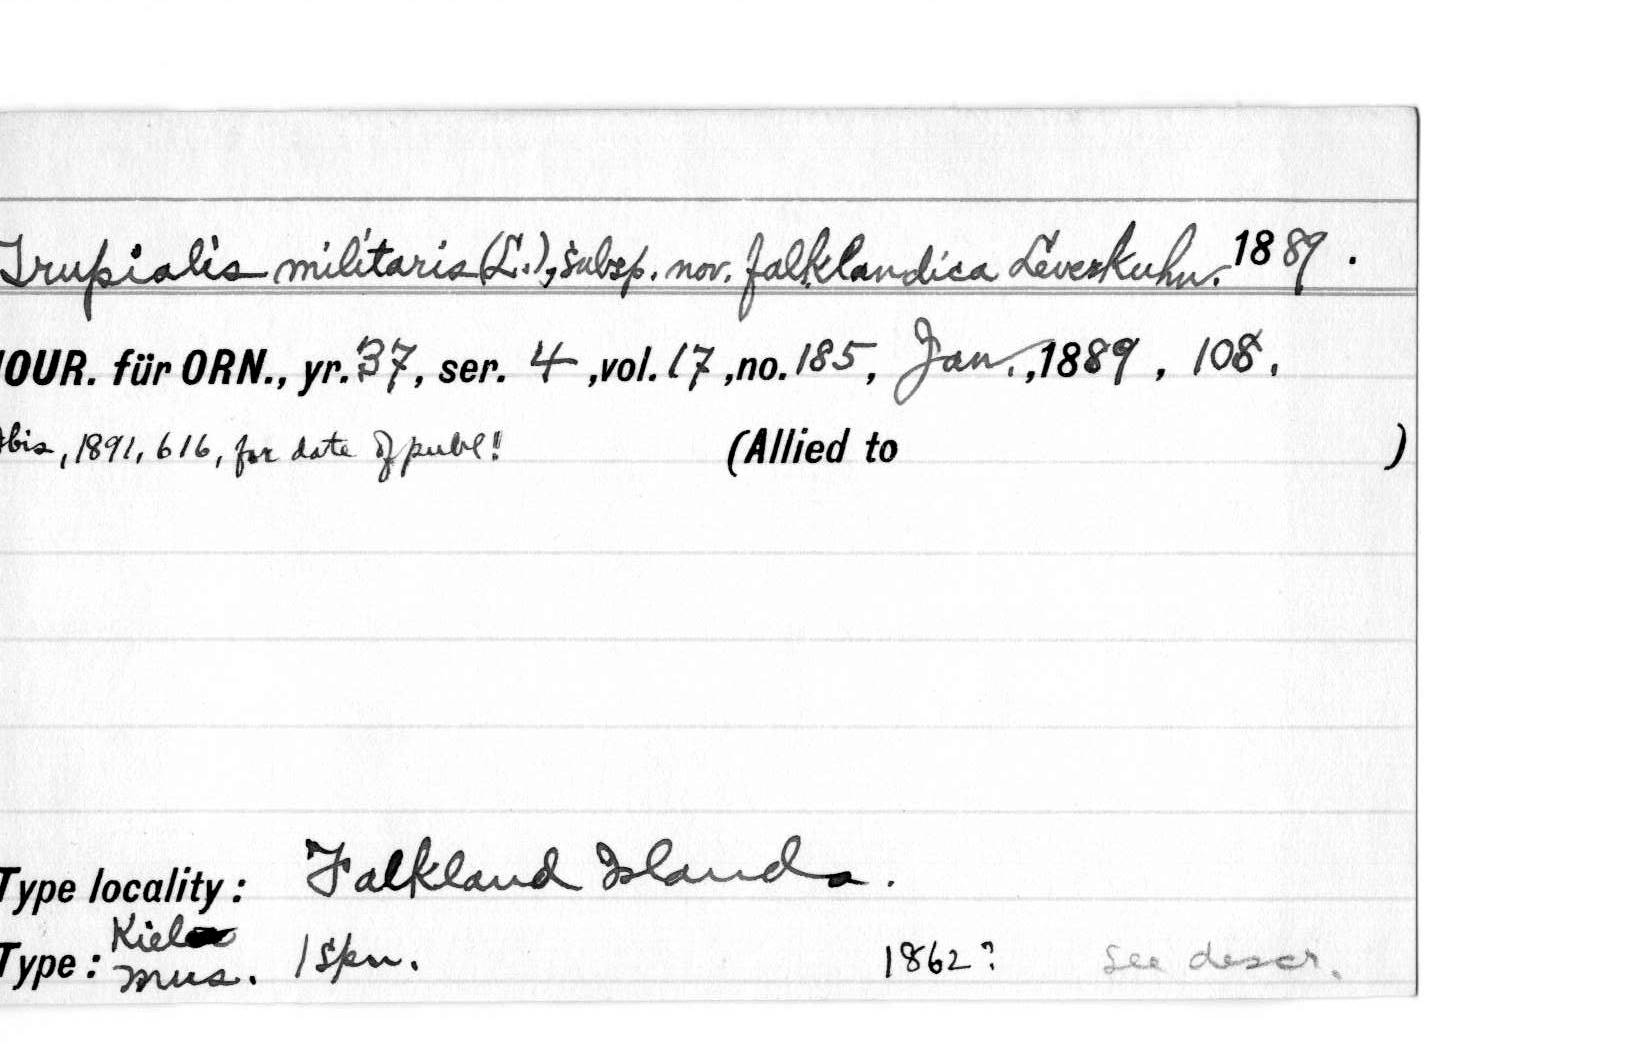 Trupialis militaris (L.), subsp. nov. falklandica Leverkuhn. 1889.
JOUR. für ORN., yr. 37, ser. 4, vol. 17, no. 185, Jan., 1889, 108.
Ibis, 1891, 616, for date of publ! (Allied to )
Type locality: Falkland Islands.
Type: Kiel mus. 1 spn. 1862? see descr.